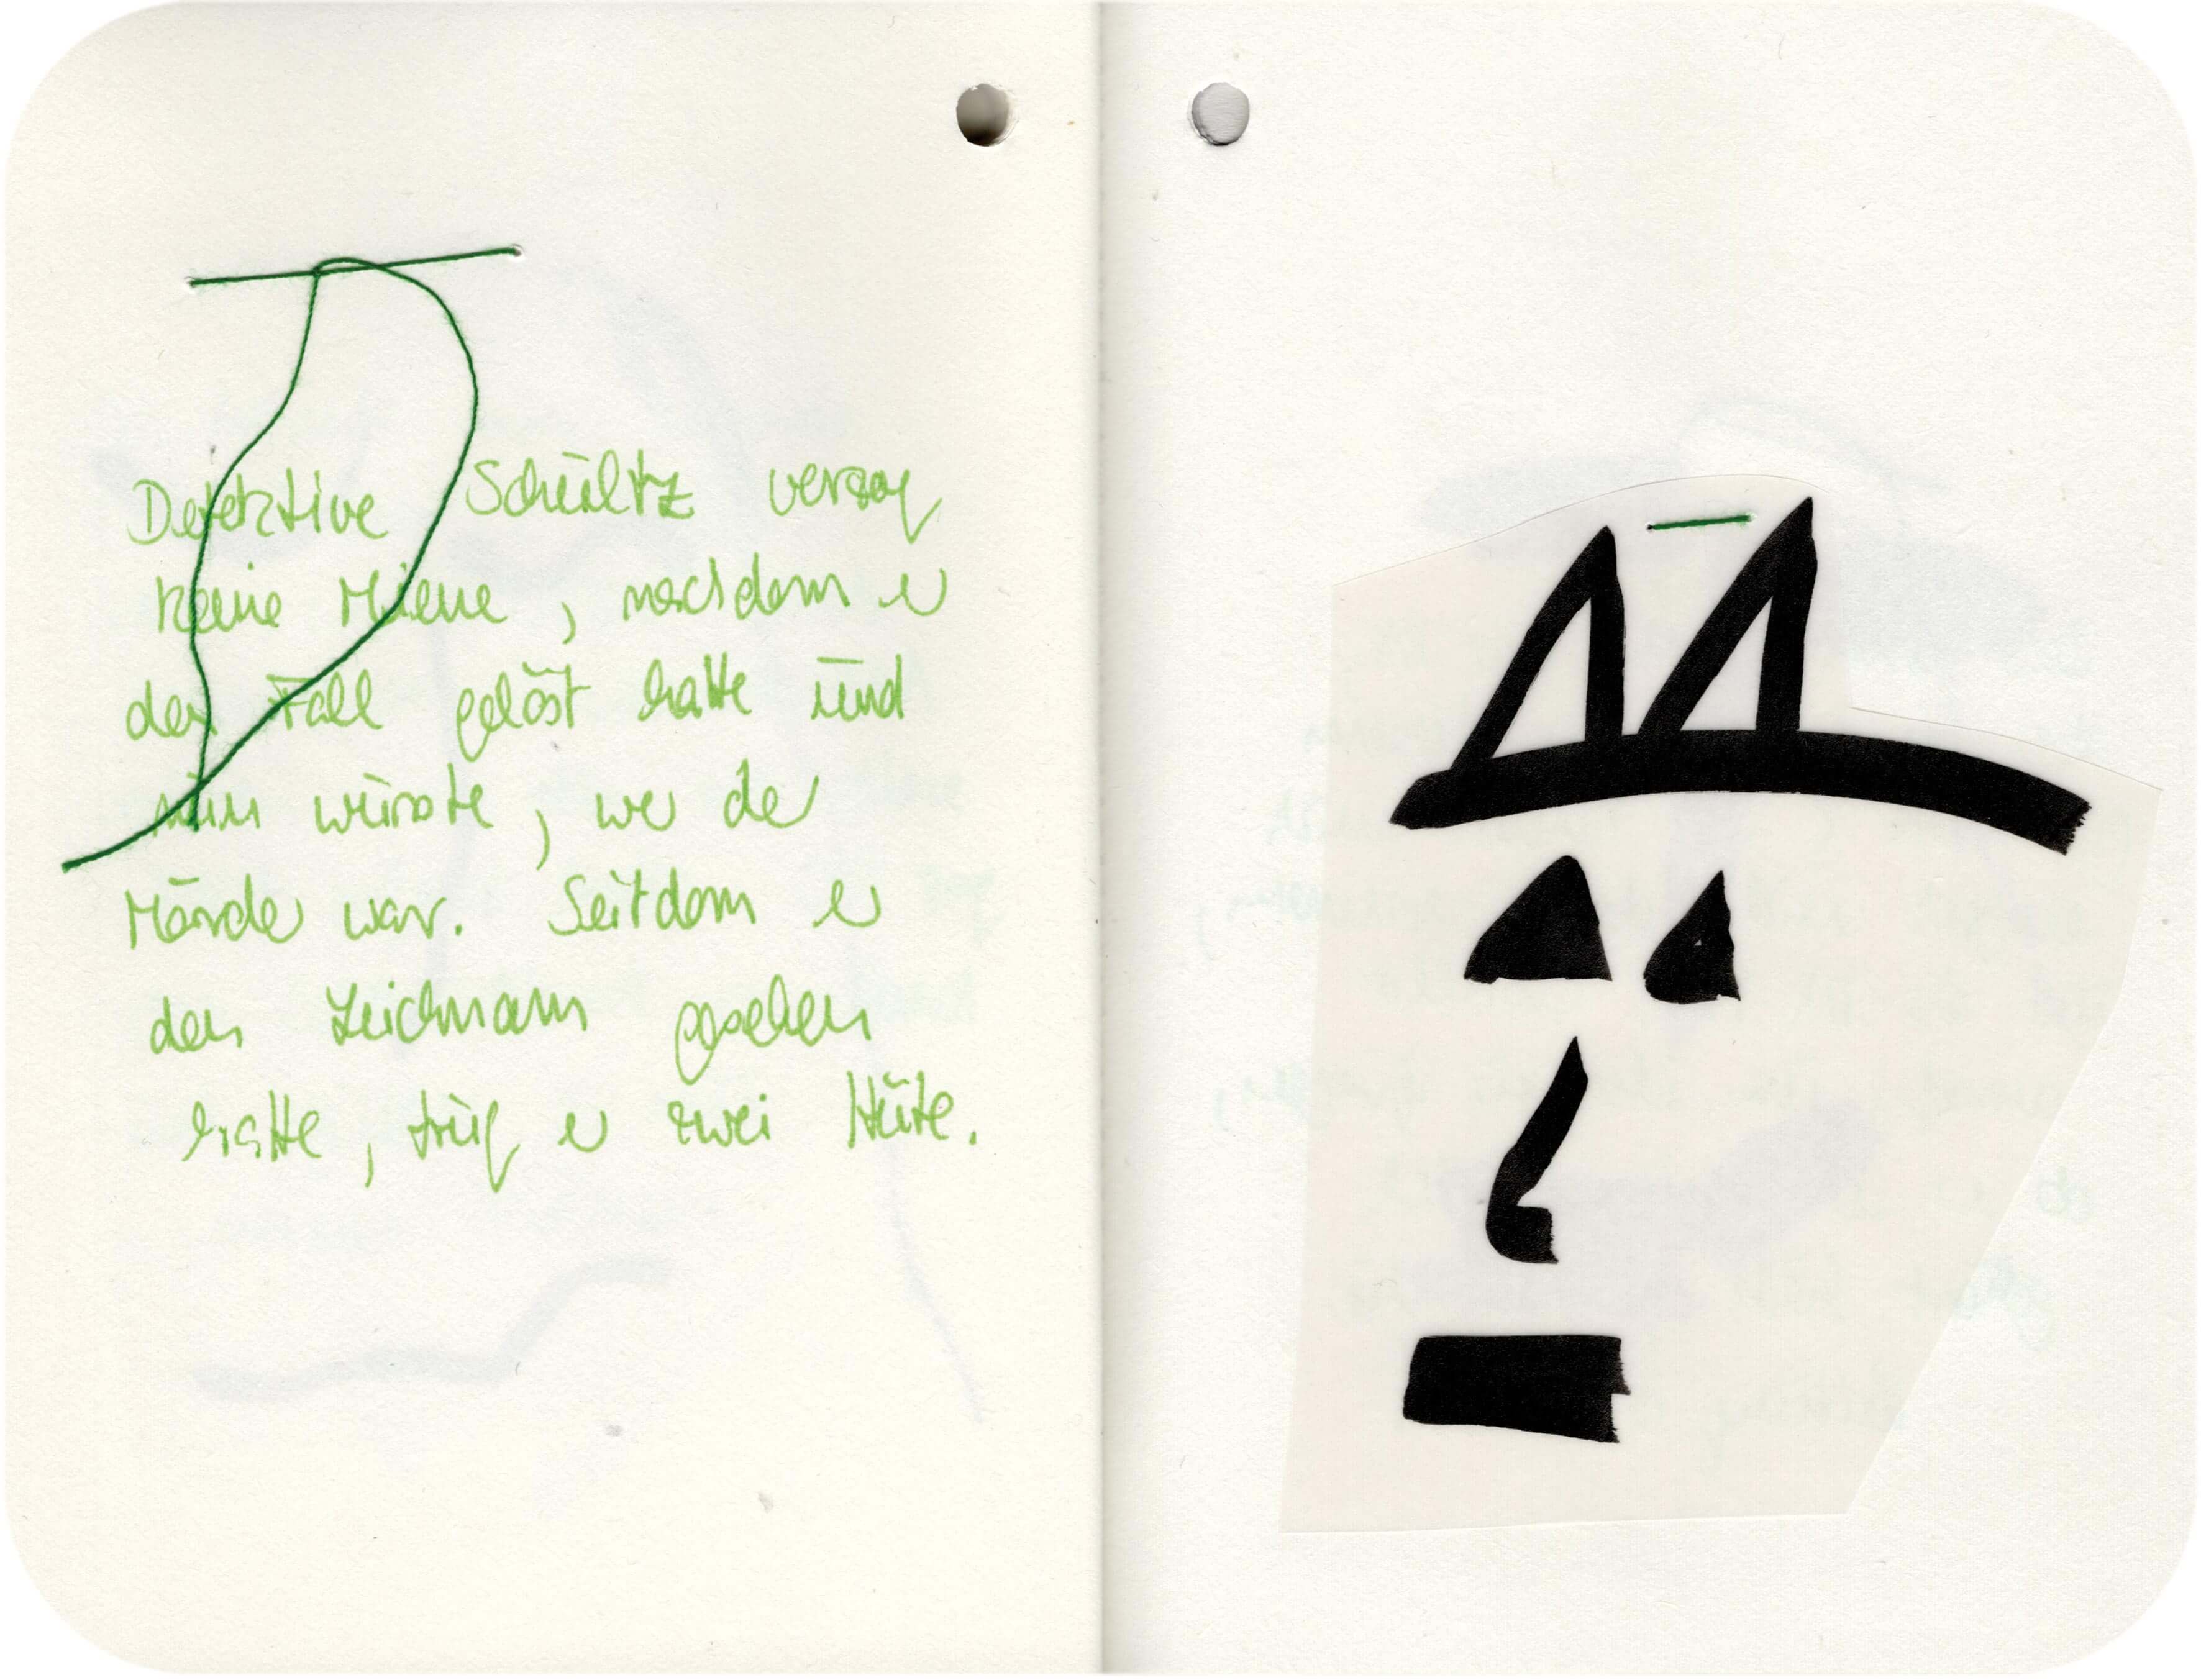 Detektive Schultz verzog
keine Miene, nachdem er
den Fall gelöst hatte und
nun wusste, wer der
Mörder war. Seitdem er
den Leichnam gesehen
hatte, trug er zwei Hüte.